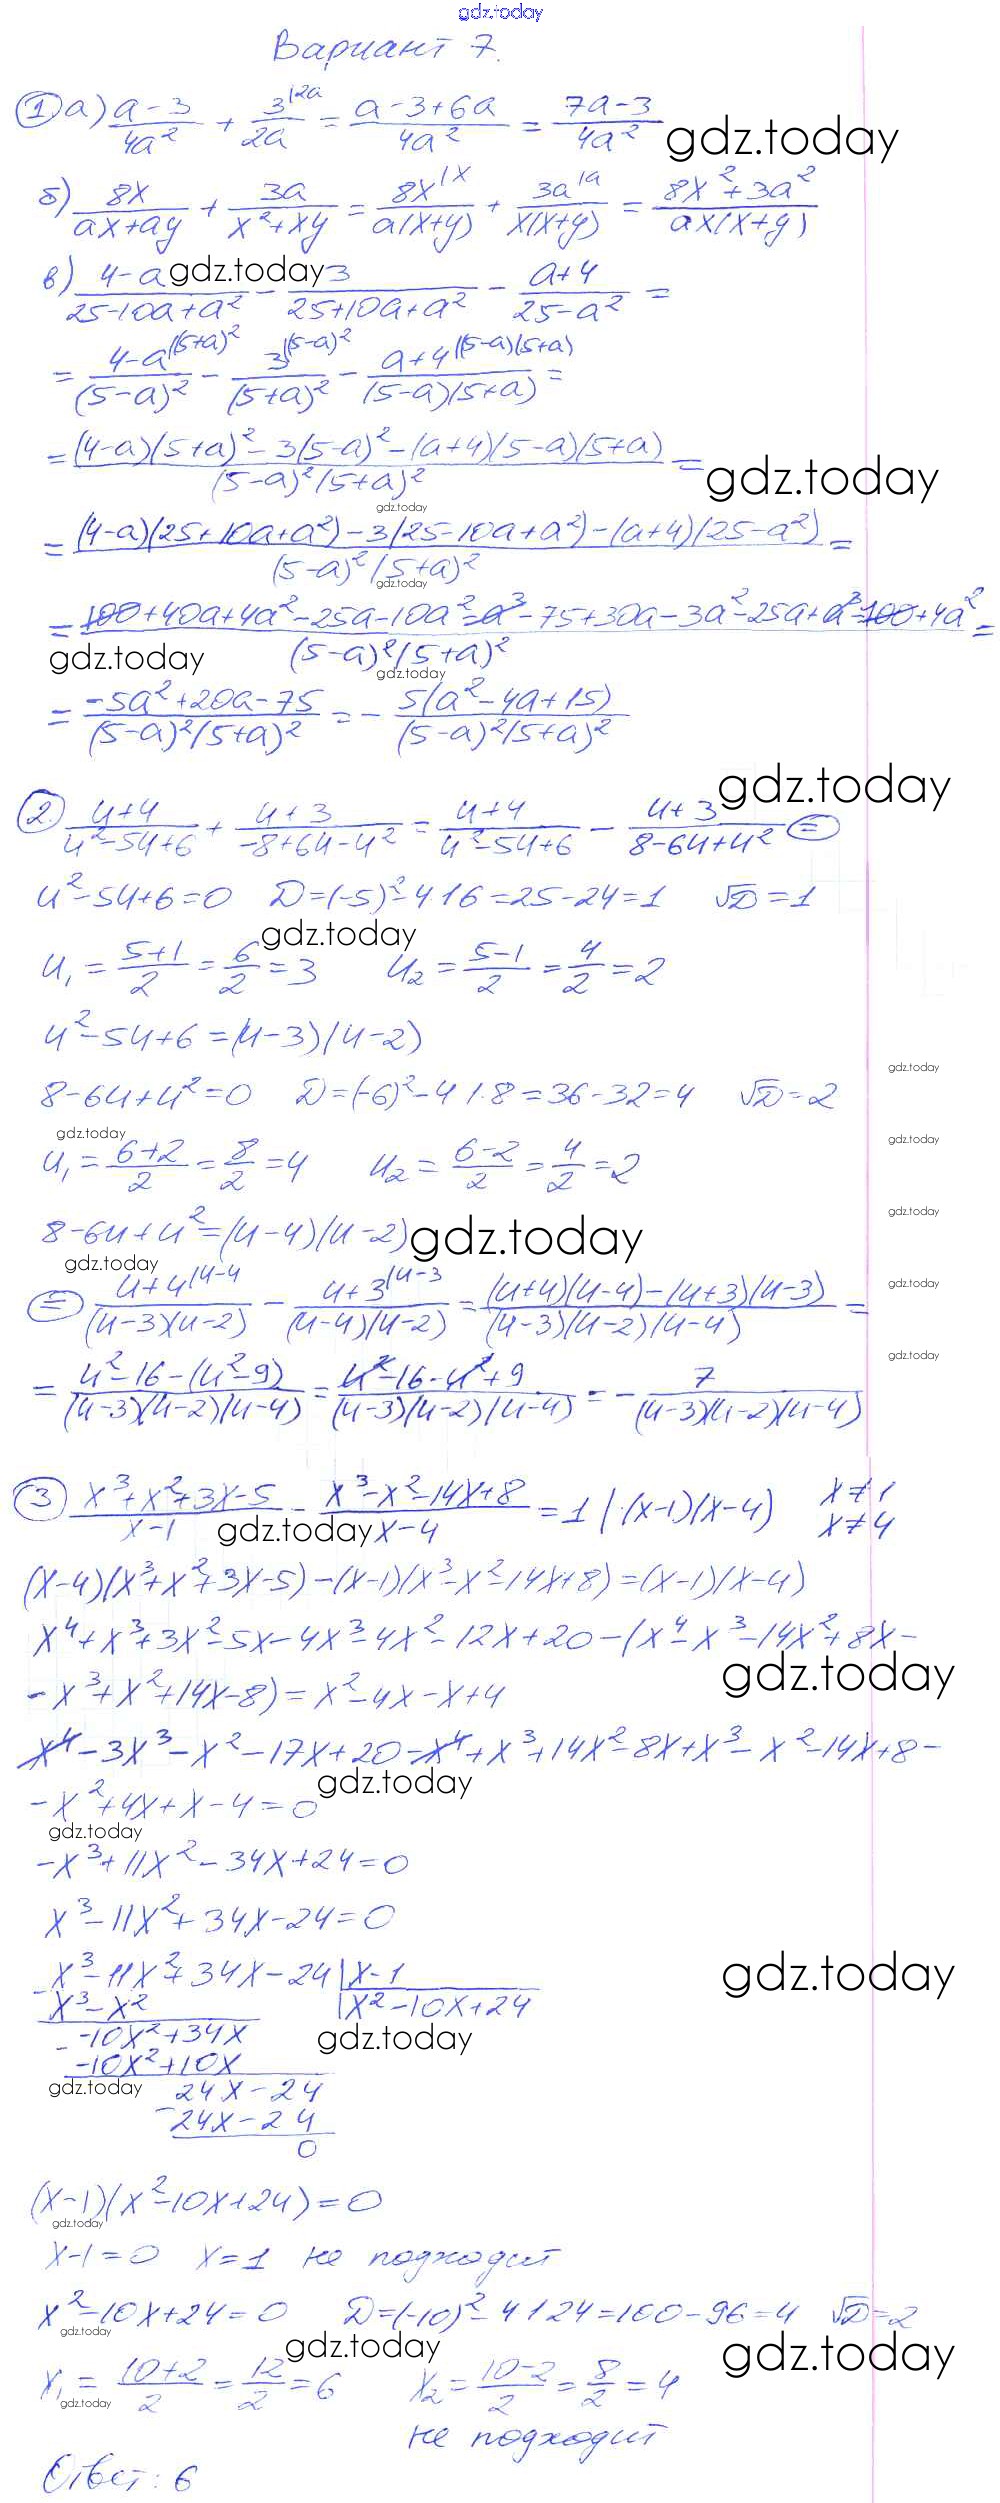 gdz.today
Вариант 7.
① а) (a-3)/(4a²) + 3^{|2a}/(2a) = (a-3+6a)/(4a²) = (7a-3)/(4a²) gdz.today
б) 8x/(ax+ay) + 3a/(x²+xy) = 8x^{|x}/(a(x+y)) + 3a^{|a}/(x(x+y)) = (8x²+3a²)/(ax(x+y))
в) (4-a)/(25-10a+a²) - 3/(25+10a+a²) - (a+4)/(25-a²) = gdz.today
= (4-a)^{|(5+a)²}/(5-a)² - 3^{|(5-a)²}/(5+a)² - (a+4)^{|(5-a)(5+a)}/((5-a)(5+a)) =
= ((4-a)(5+a)² - 3(5-a)² - (a+4)(5-a)(5+a))/((5-a)²(5+a)²) = gdz.today
gdz.today
= ((4-a)(25+10a+a²) - 3(25-10a+a²) - (a+4)(25-a²))/((5-a)²(5+a)²) =
gdz.today
= (100+40a+4a²-25a-10a²-a³-75+30a-3a²-25a+a³-100+4a²)/((5-a)²(5+a)²) =
gdz.today gdz.today
= (-5a²+20a-75)/((5-a)²(5+a)²) = - 5(a²-4a+15)/((5-a)²(5+a)²)
gdz.today
② (u+4)/(u²-5u+6) + (u+3)/(-8+6u-u²) = (u+4)/(u²-5u+6) - (u+3)/(8-6u+u²) ⊜
u²-5u+6=0 D=(-5)²-4·1·6=25-24=1 √D=1
gdz.today
u₁ = (5+1)/2 = 6/2 = 3 u₂ = (5-1)/2 = 4/2 = 2
u²-5u+6=(u-3)(u-2)
gdz.today
8-6u+u²=0 D=(-6)²-4·1·8=36-32=4 √D=2
gdz.today gdz.today
u₁ = (6+2)/2 = 8/2 = 4 u₂ = (6-2)/2 = 4/2 = 2
gdz.today
8-6u+u²=(u-4)(u-2) gdz.today
gdz.today gdz.today
⊜ (u+4)^{|u-4}/((u-3)(u-2)) - (u+3)^{|u-3}/((u-4)(u-2)) = ((u+4)(u-4)-(u+3)(u-3))/((u-3)(u-2)(u-4)) =
gdz.today
= (u²-16-(u²-9))/((u-3)(u-2)(u-4)) = (u²-16-u²+9)/((u-3)(u-2)(u-4)) = - 7/((u-3)(u-2)(u-4))
③ (x³+x²+3x-5)/(x-1) - (x³-x²-14x+8)/(x-4) = 1 |·(x-1)(x-4) x≠1
x≠4
gdz.today
(x-4)(x³+x²+3x-5)-(x-1)(x³-x²-14x+8)=(x-1)(x-4)
x⁴+x³+3x²-5x-4x³-4x²-12x+20-(x⁴-x³-14x²+8x-
gdz.today
-x³+x²+14x-8)=x²-4x-x+4
x⁴-3x³-x²-17x+20-x⁴+x³+14x²-8x+x³-x²-14x+8-
gdz.today
-x²+4x+x-4=0
gdz.today
-x³+11x²-34x+24=0
x³-11x²+34x-24=0
x³-11x²+34x-24 |x-1 gdz.today
x³-x² |x²-10x+24
-10x²+34x gdz.today
-10x²+10x
gdz.today 24x-24
24x-24
0
(x-1)(x²-10x+24)=0
gdz.today
x-1=0 x=1 не подходит
x²-10x+24=0 D=(-10)²-4·1·24=100-96=4 √D=2
gdz.today gdz.today gdz.today
x₁ = (10+2)/2 = 12/2 = 6 x₂ = (10-2)/2 = 8/2 = 4
gdz.today
не подходит
Ответ: 6